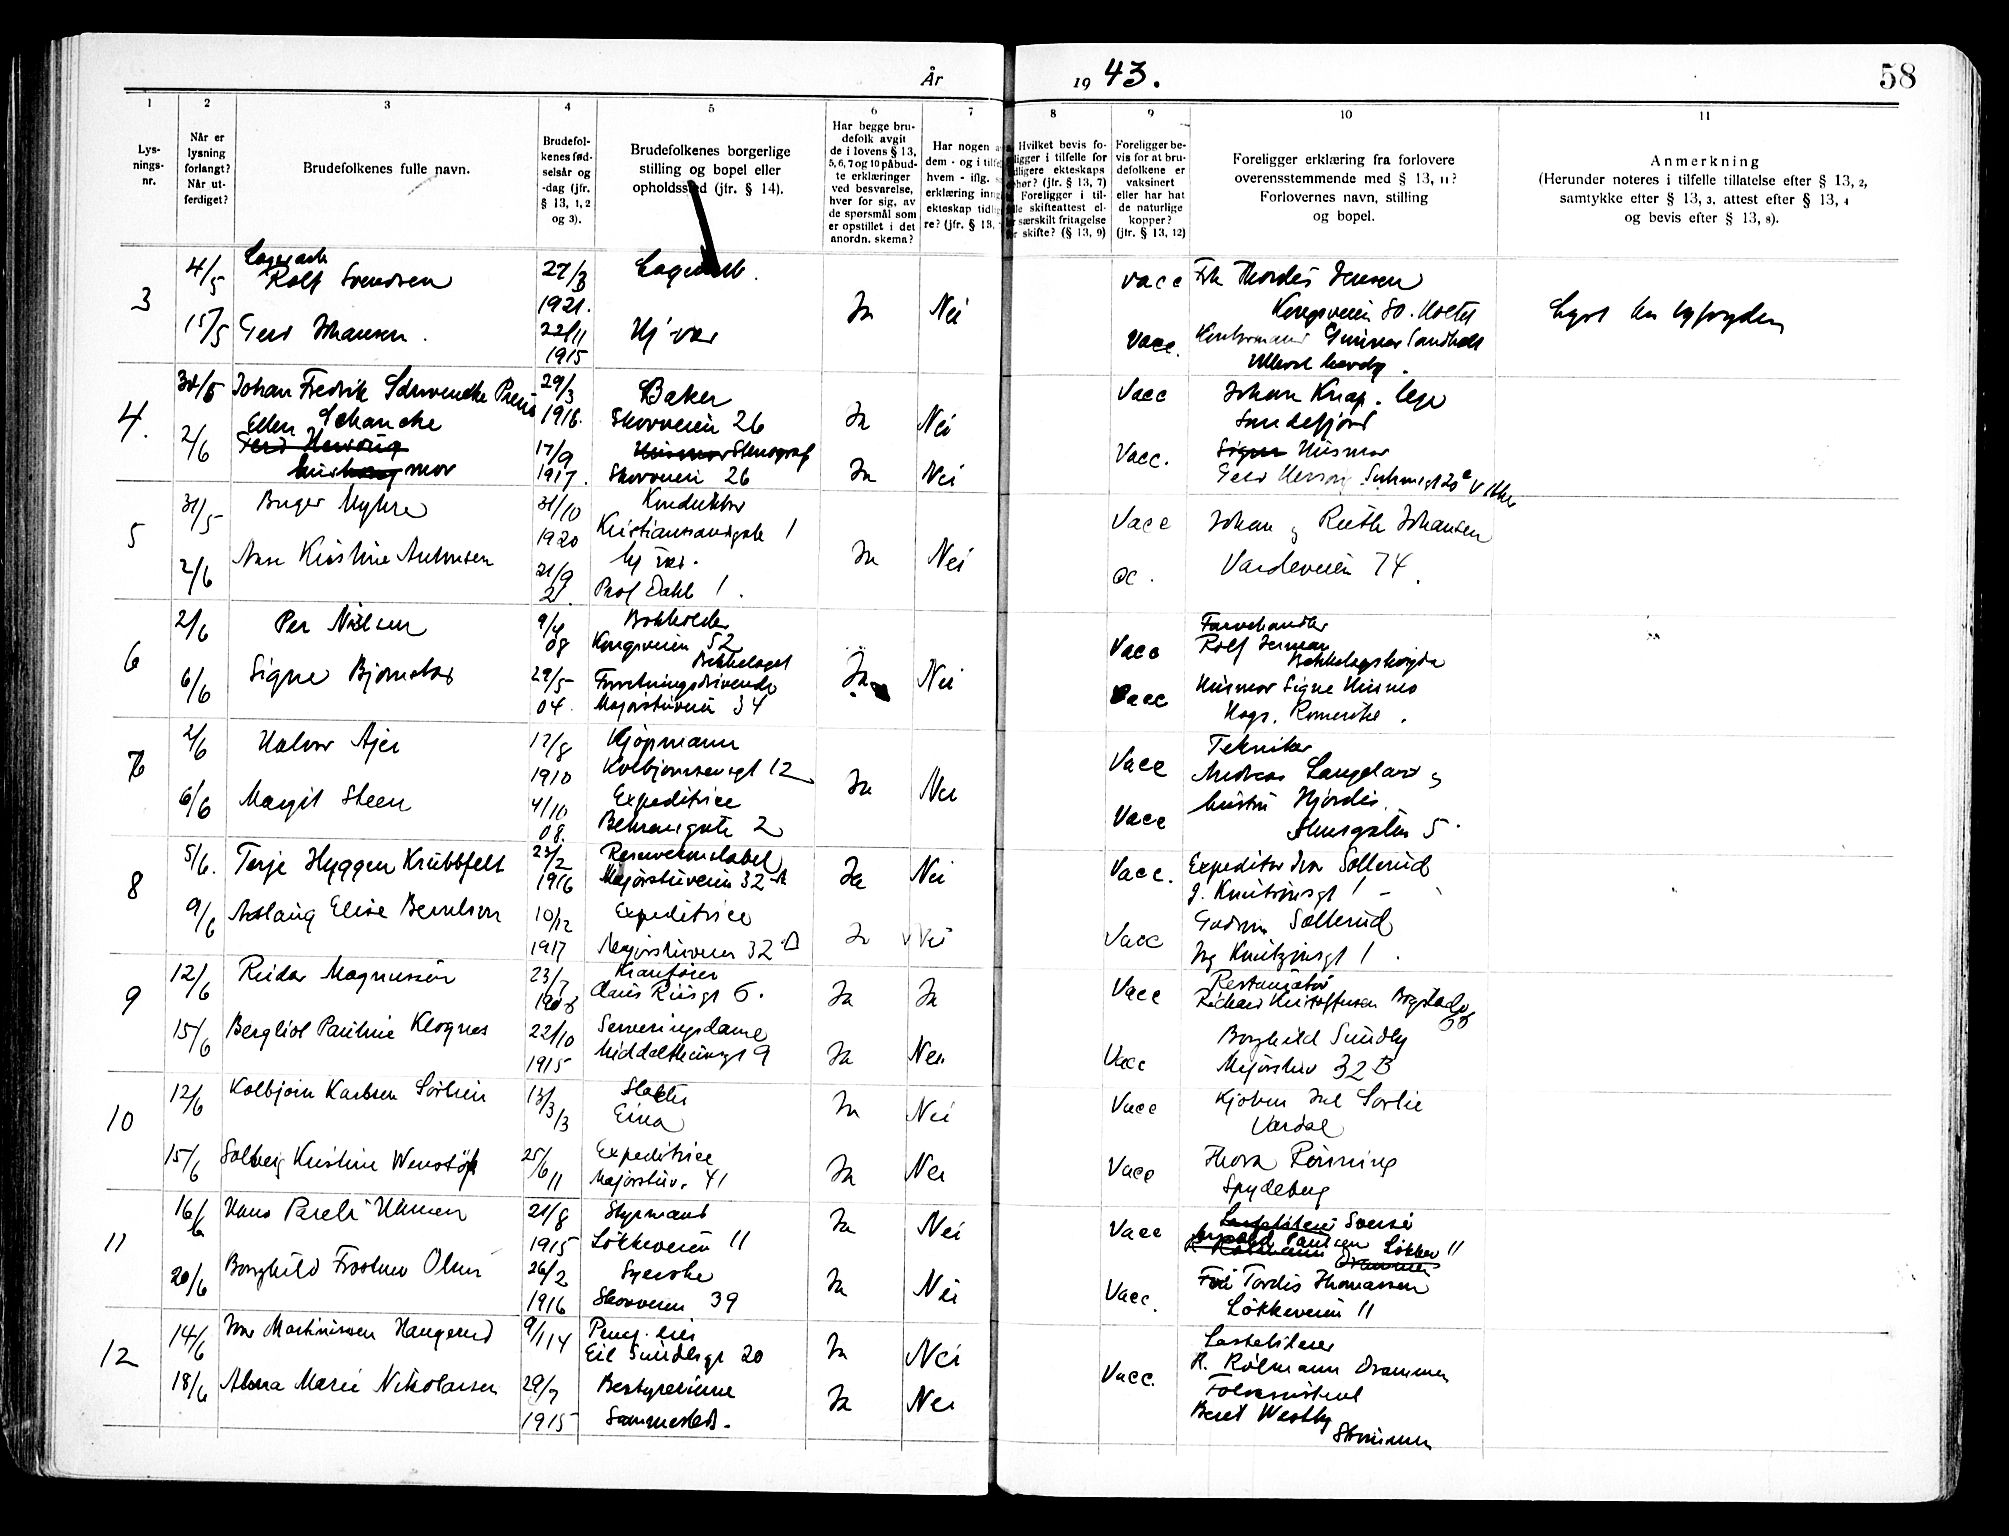 År 1943.
58
1 2 3 4 5 6 7 8 9 10 11
Lys-
nings-
nr.
Når er
lysning
forlangt?
Når ut-
ferdiget?
Brudefolkenes fulle navn.
Brudefol-
kenes fød-
selsår og
-dag (jfr.
§ 13, 1, 2
og 3).
Brudefolkenes borgerlige
stilling og bopel eller
opholdssted (jfr. § 14).
Har begge bru-
defolk avgit
de i lovens § 13,
5, 6, 7 og 10 påbud-
te erklæringer
ved besvarelse,
hver for sig, av
de spørsmål som
er opstillet i det
anordn. skema?
Har nogen a
dem - og i tilfe
hvem - iflg. s
erklæring inng
ekteskap tidlig
re? (jfr. § 13,
Hvilket bevis fo-
ligger i tilfelle for
dligere ekteskaps
hør? (jfr. § 13, 7)
Foreligger i til-
lle skifteattest el-
r særskilt fritagelse
r skifte? (§ 13, 9)
Foreligger be-
vis for at bru-
defolkene er
vaksinert
eller har hat
de naturlige
kopper?
(jfr. § 13, 12)
Foreligger erklæring fra forlovere
overensstemmende med § 13, 11?
Forlovernes navn, stilling
og bopel.
Anmerkning
(Herunder noteres i tilfelle tillatelse efter § 13, 2,
samtykke efter § 13, 3, attest efter § 13, 4
og bevis efter § 13, 8).
3
4/5 Rolf Svendsen 27/3 1921. Vacc Frk Thordis Jensen
Kongsveien 80. Holtet
15/5 Gerd Johansen. 22/11 1915 Hj vær Ja Nei Vacc. Gunnar Sandholt
Lyst
4.
30/5 Johan Fredrik 29/3 1916. Baker
Skovveien 26 Ja Nei Vacc Johan Knap. lege
Sandefjord
2/6 Ellen Schancke 17/9 1917. Stenograf
Skovveien 26 Ja Nei Vacc. Husmor
5
31/5 Birger Myhre 31/10 1920 Konduktør
Kristianssandsgate 1 Vacc Johan og Ruth Johansen
2/6 Kristine Antonsen 21/9 21. hj vær.
Prof Dahls 1. Ja Nei Vardeveien 74.
6
2/6 Per Nilsen 9/4 08 Bokholder
Kongsveien 52
Bekkelaget Vacc Farvehandler
Rolf Jensen
Bekkelagshøgda
6/6 Signe Bjørnstad 29/5 04. Forretningsdrivende
Majorstuveien 34 Ja Nei Vacc Husmor Signe Husmo
Hags. Romerike.
7
2/6 Halvor Ajer 17/8 1910 Kjøpmann
Kolbjørnsensgt 12 Vacc Tekniker
Andreas Langeland og
6/6 Margit Steen 4/10 08. Expeditrice
Behrensgate 2 Ja Nei Vacc hustru Hjørdis.
5.
8
5/6. Terje Hyggen Krubbfelt 23/2 1916 Reservekonstabel
Majorstuveien 32 Ja Nei Vacc. Expeditør Ivar Sollerud
J. Knudsønsgt 1
9/6 Aslaug Elise Berntsen 10/12 1917 Expeditrice
Majorstuveien 32 Ja Nei Vacc Gudrun Sollerud
Jørg Knudsønsgt 1.
9
12/6 Reidar Magnussen 23/7 Kranfører
Claus Riisgt 6. Ja Ja Vacc Restauratør
15/6 Bergliot Pauline Klognes 22/10 1915 Serveringsdame
Middelthunsgt 9 Ja Nei Vacc Borghild Sundby
Majorstuv 32 B
10
12/6 Kolbjørn Karlsen Sørlien 13/3/3 Slakter
Eina Ja Nei Vacc Kjøbm
Vardal
15/6 Solveig Kristine Wenstøp 25/6 11 Expeditrice
Majorstuv. 41 Ja Nei Vacc Thora Rønning
Spydeberg
11
16/6 Hans 21/8 1915 Styrmand
Løkkeveien 11 Ja Nei Vacc Løkkev 11
20/6 Borghild Olsen 26/2 1916 Syerske
Skovveien 39 Ja Nei Vacc. Tordis Thomassen
Løkkeveien 11
12
14/6 Martinusen Haugerud 9/1 14
Eil Sundtsgt 20 Ja Nei Lastebileier
R. Rølmann Drammen
18/6 Alma Marie Nikolaisen 29/7 1915 Bestyrerinne
Sammesteds. Ja Nei Vacc. Beret Westby
Strømmen